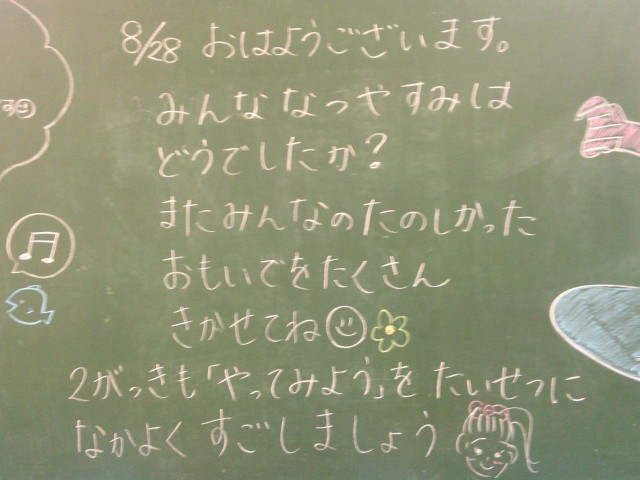 8/28 おはようございます。
みんな なつやすみは
どうでしたか?
またみんなのたのしかった
おもいでをたくさん
きかせてね
2がっきも「やってみよう」を たいせつに
なかよく すごしましょう